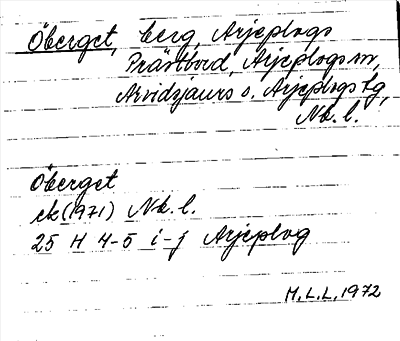 Öberget, berg, Arjeplogs
Prästbord, Arjeplogs sn,
Arvidsjaurs o. Arjeplogs tg,
Nb. l.
Öberget
ek (1971) Nb. l.
25 H 4-5 i-j Arjeplog
M.L.L. 1972